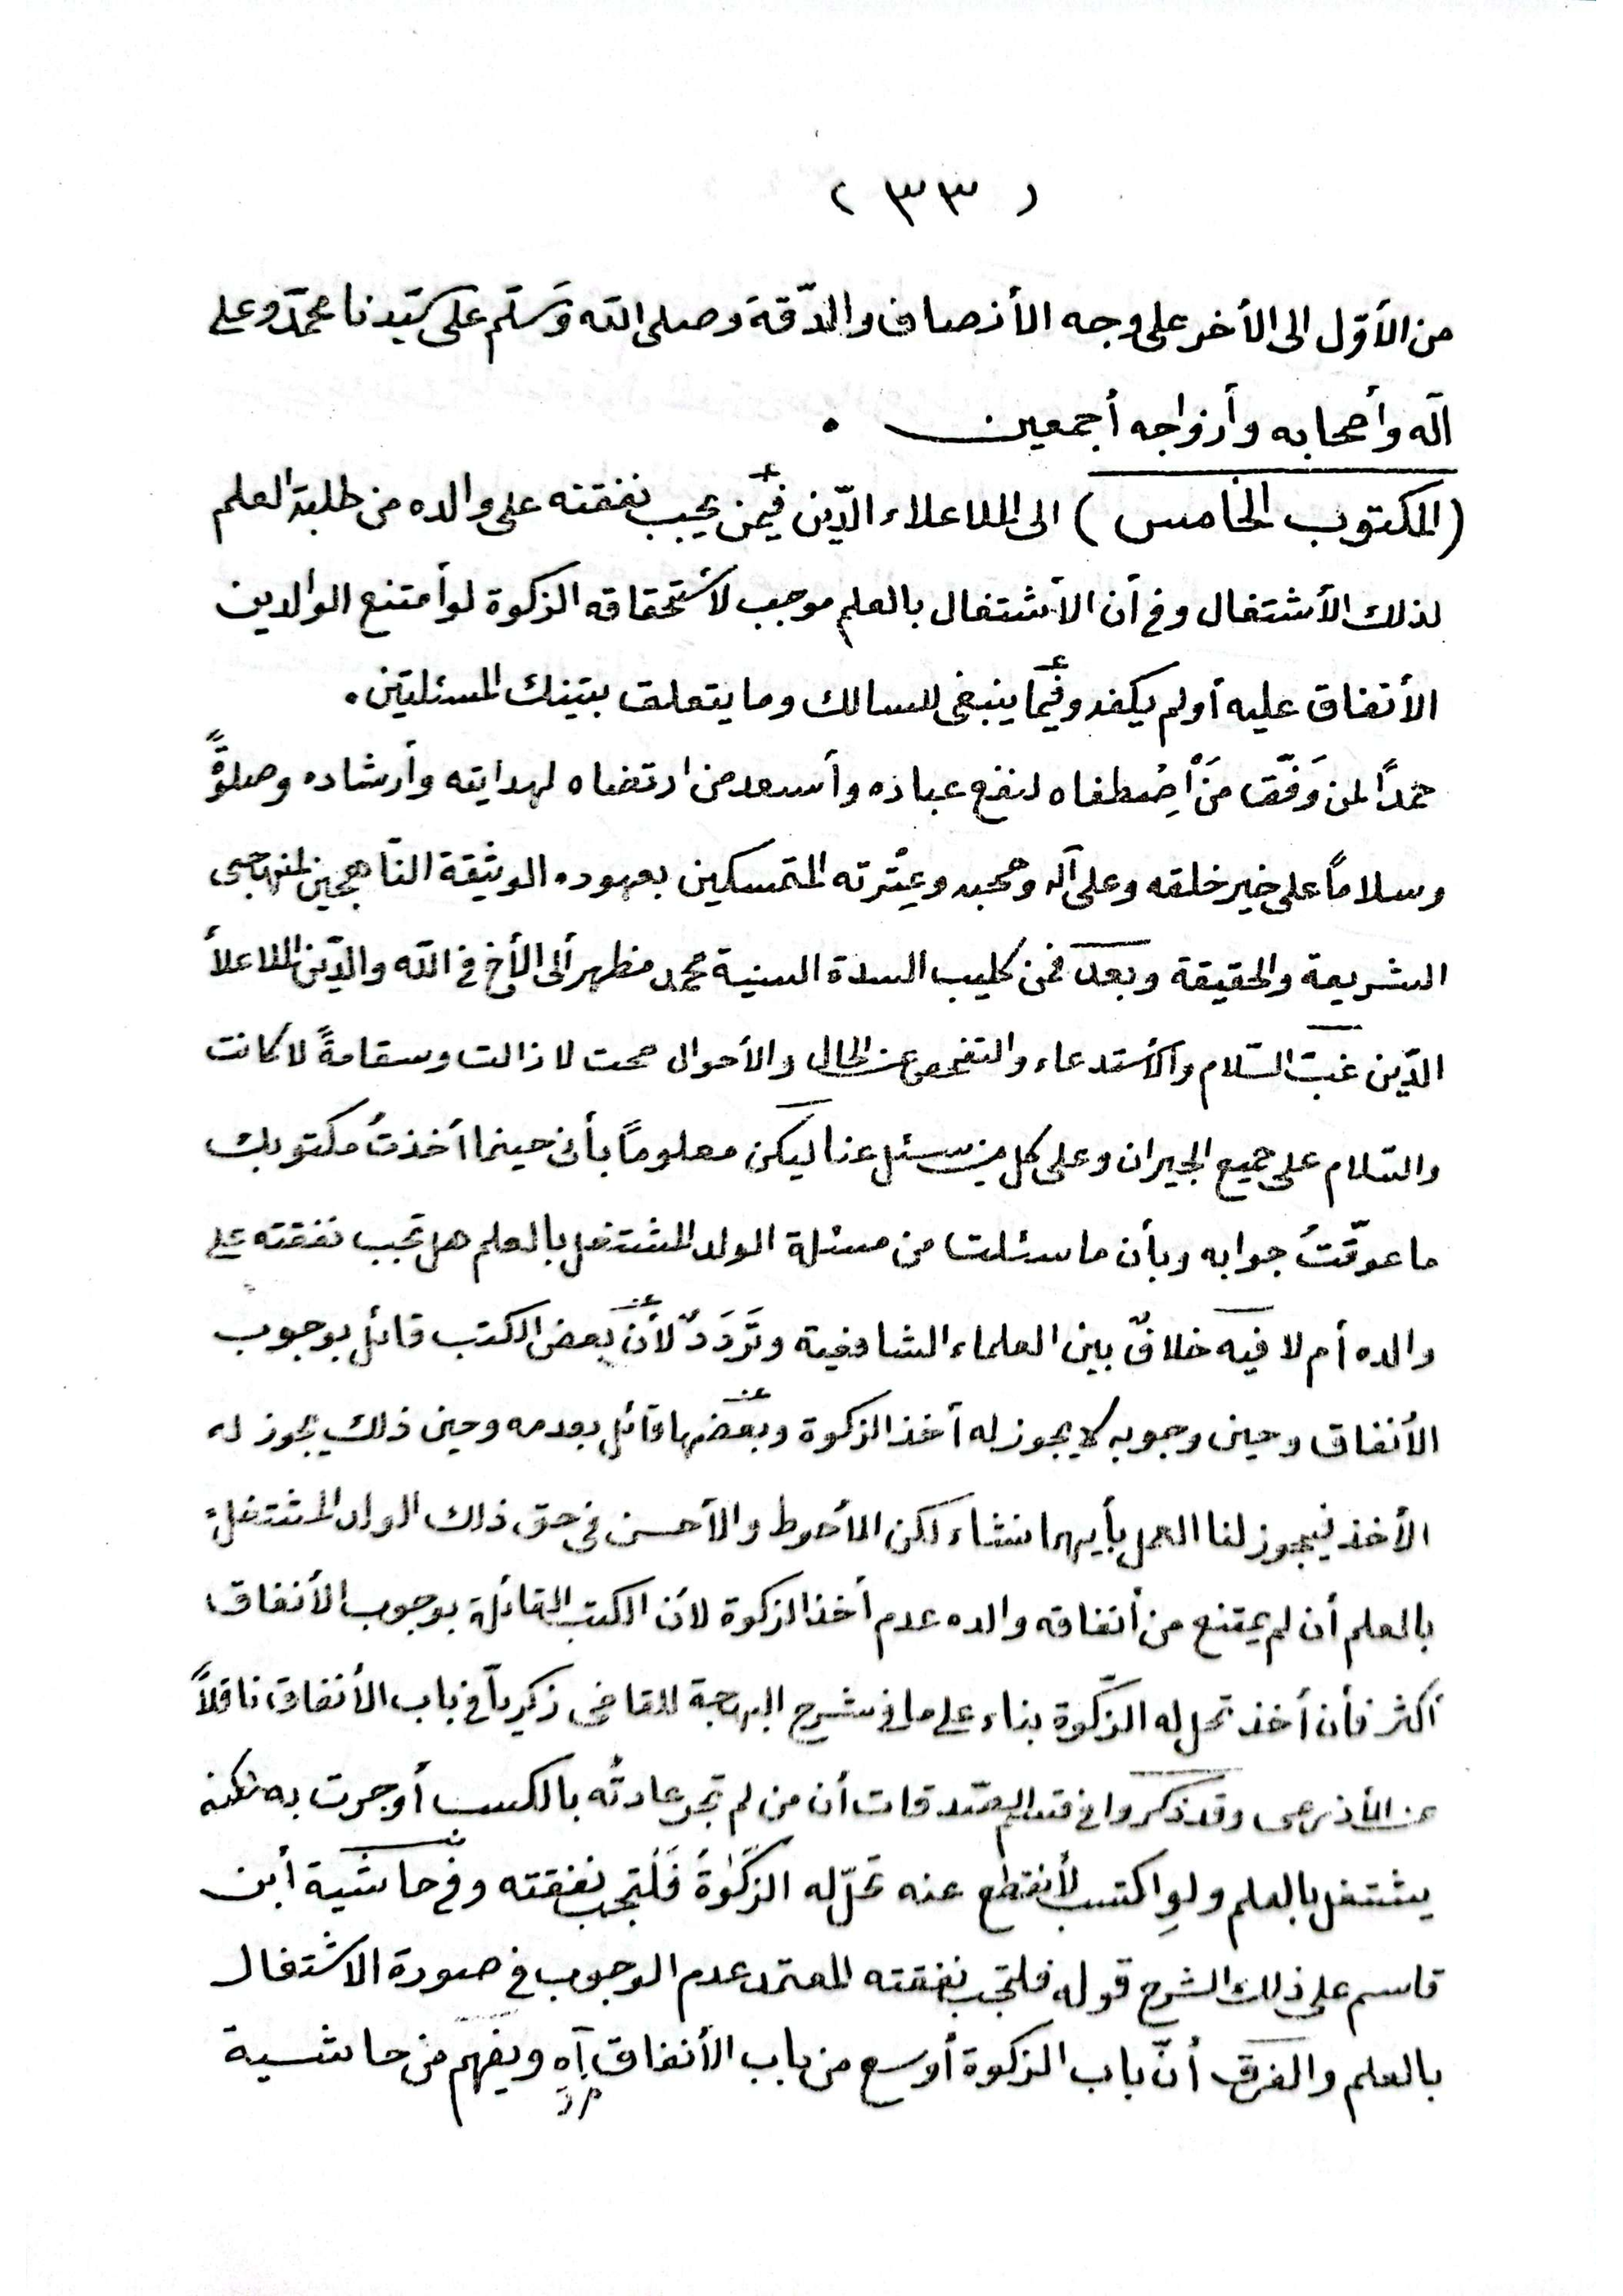 ( ٣٣ )
من الأوّل الى الأخر على وجه الأنصاف والدّقة وصلى الله وَسَلّم على سَيّدنا محمّد وعلى
آله وأصحابه وأزواجه أجمعين .
(المكتوب الخامس) الى الملا علاء الدّين فيمن يجب نفقته على والده من طلبة العلم
لذلك الأشتغال وفى أن الأشتغال بالعلم موجب لأستحقاقه الزكوة لو أمتنع الوالدين
الأنفاق عليه أولم يكفه وفيما ينبغى للسالك وما يتعلق بتينك المسئلتين .
حمدًا لمن وَفّقَ مَنْ اِصْطفاه لنفع عباده وأسعد من ارتضاه لهدايته وأرشاده وصلوةً
وسلاماً على خير خلقه وعلى آله وصحبه وعِتْرته المتمسكين بعهوده الوثيقة النّاهجين لمنهاجى
الشريعة والحقيقة وبعد فمن كليب السدة السنية محمد مظهر ألى الأخ فى الله والدّين الملا علأ
الدّين غبّ السّلام والأستدعاء والتفحص عن الحال والأحوال صحت لا زالت وسقامةً لا كانت
والسّلام على جميع الجيران وعلى كل من سئل عنا ليكن معلوماً بأنى حينما أخذتُ مكتوبك
ما عوّقتُ جوابه وبأن ما سئلت من مسئلة الولد المشتغل بالعلم هل تجب نفقته على
والده أم لا فيه خلافٌ بين العلماء الشافعية وتَرَدَدٌ لأنّ بعض الكتب قائل بوجوب
الأنفاق وحين وجوبه لا يجوز له أخذ الزكوة وبعضها قائل بعدمه وحين ذلك يجوز له
الأخذ فيجوز لنا العمل بأيهما نشاء لكن الأحوط والأحسن فى حق ذلك الولد المشتغل
بالعلم أن لم يمتنع من أنفاقه والده عدم أخذ الزكوة لأن الكتب القائلة بوجوب الأنفاق
أكثر فأن أخذ تحل له الزّكوة بناء على ما فى شرح البهجة للقاضى زكريأ فى باب الأنفاق ناقلاً
عن الأذرعى وقد ذكروا فى قسم الصّدقات أن من لم تجر عادتُه بالكسب أو جرت به لكنه
يشتغل بالعلم ولوِ اكتسب لأنقطع عنه تحلّ له الزكوٰةُ فَلْتجب نفقته وفى حاشية أبن
قاسم على ذلك الشرح قوله فلتجب نفقته المعتمد عدم الوجوب فى صورة الاشتغال
بالعلم والفرق أنّ باب الزكوة أوسع من باب الأنفاق اَهِ ويفهم من حاشية